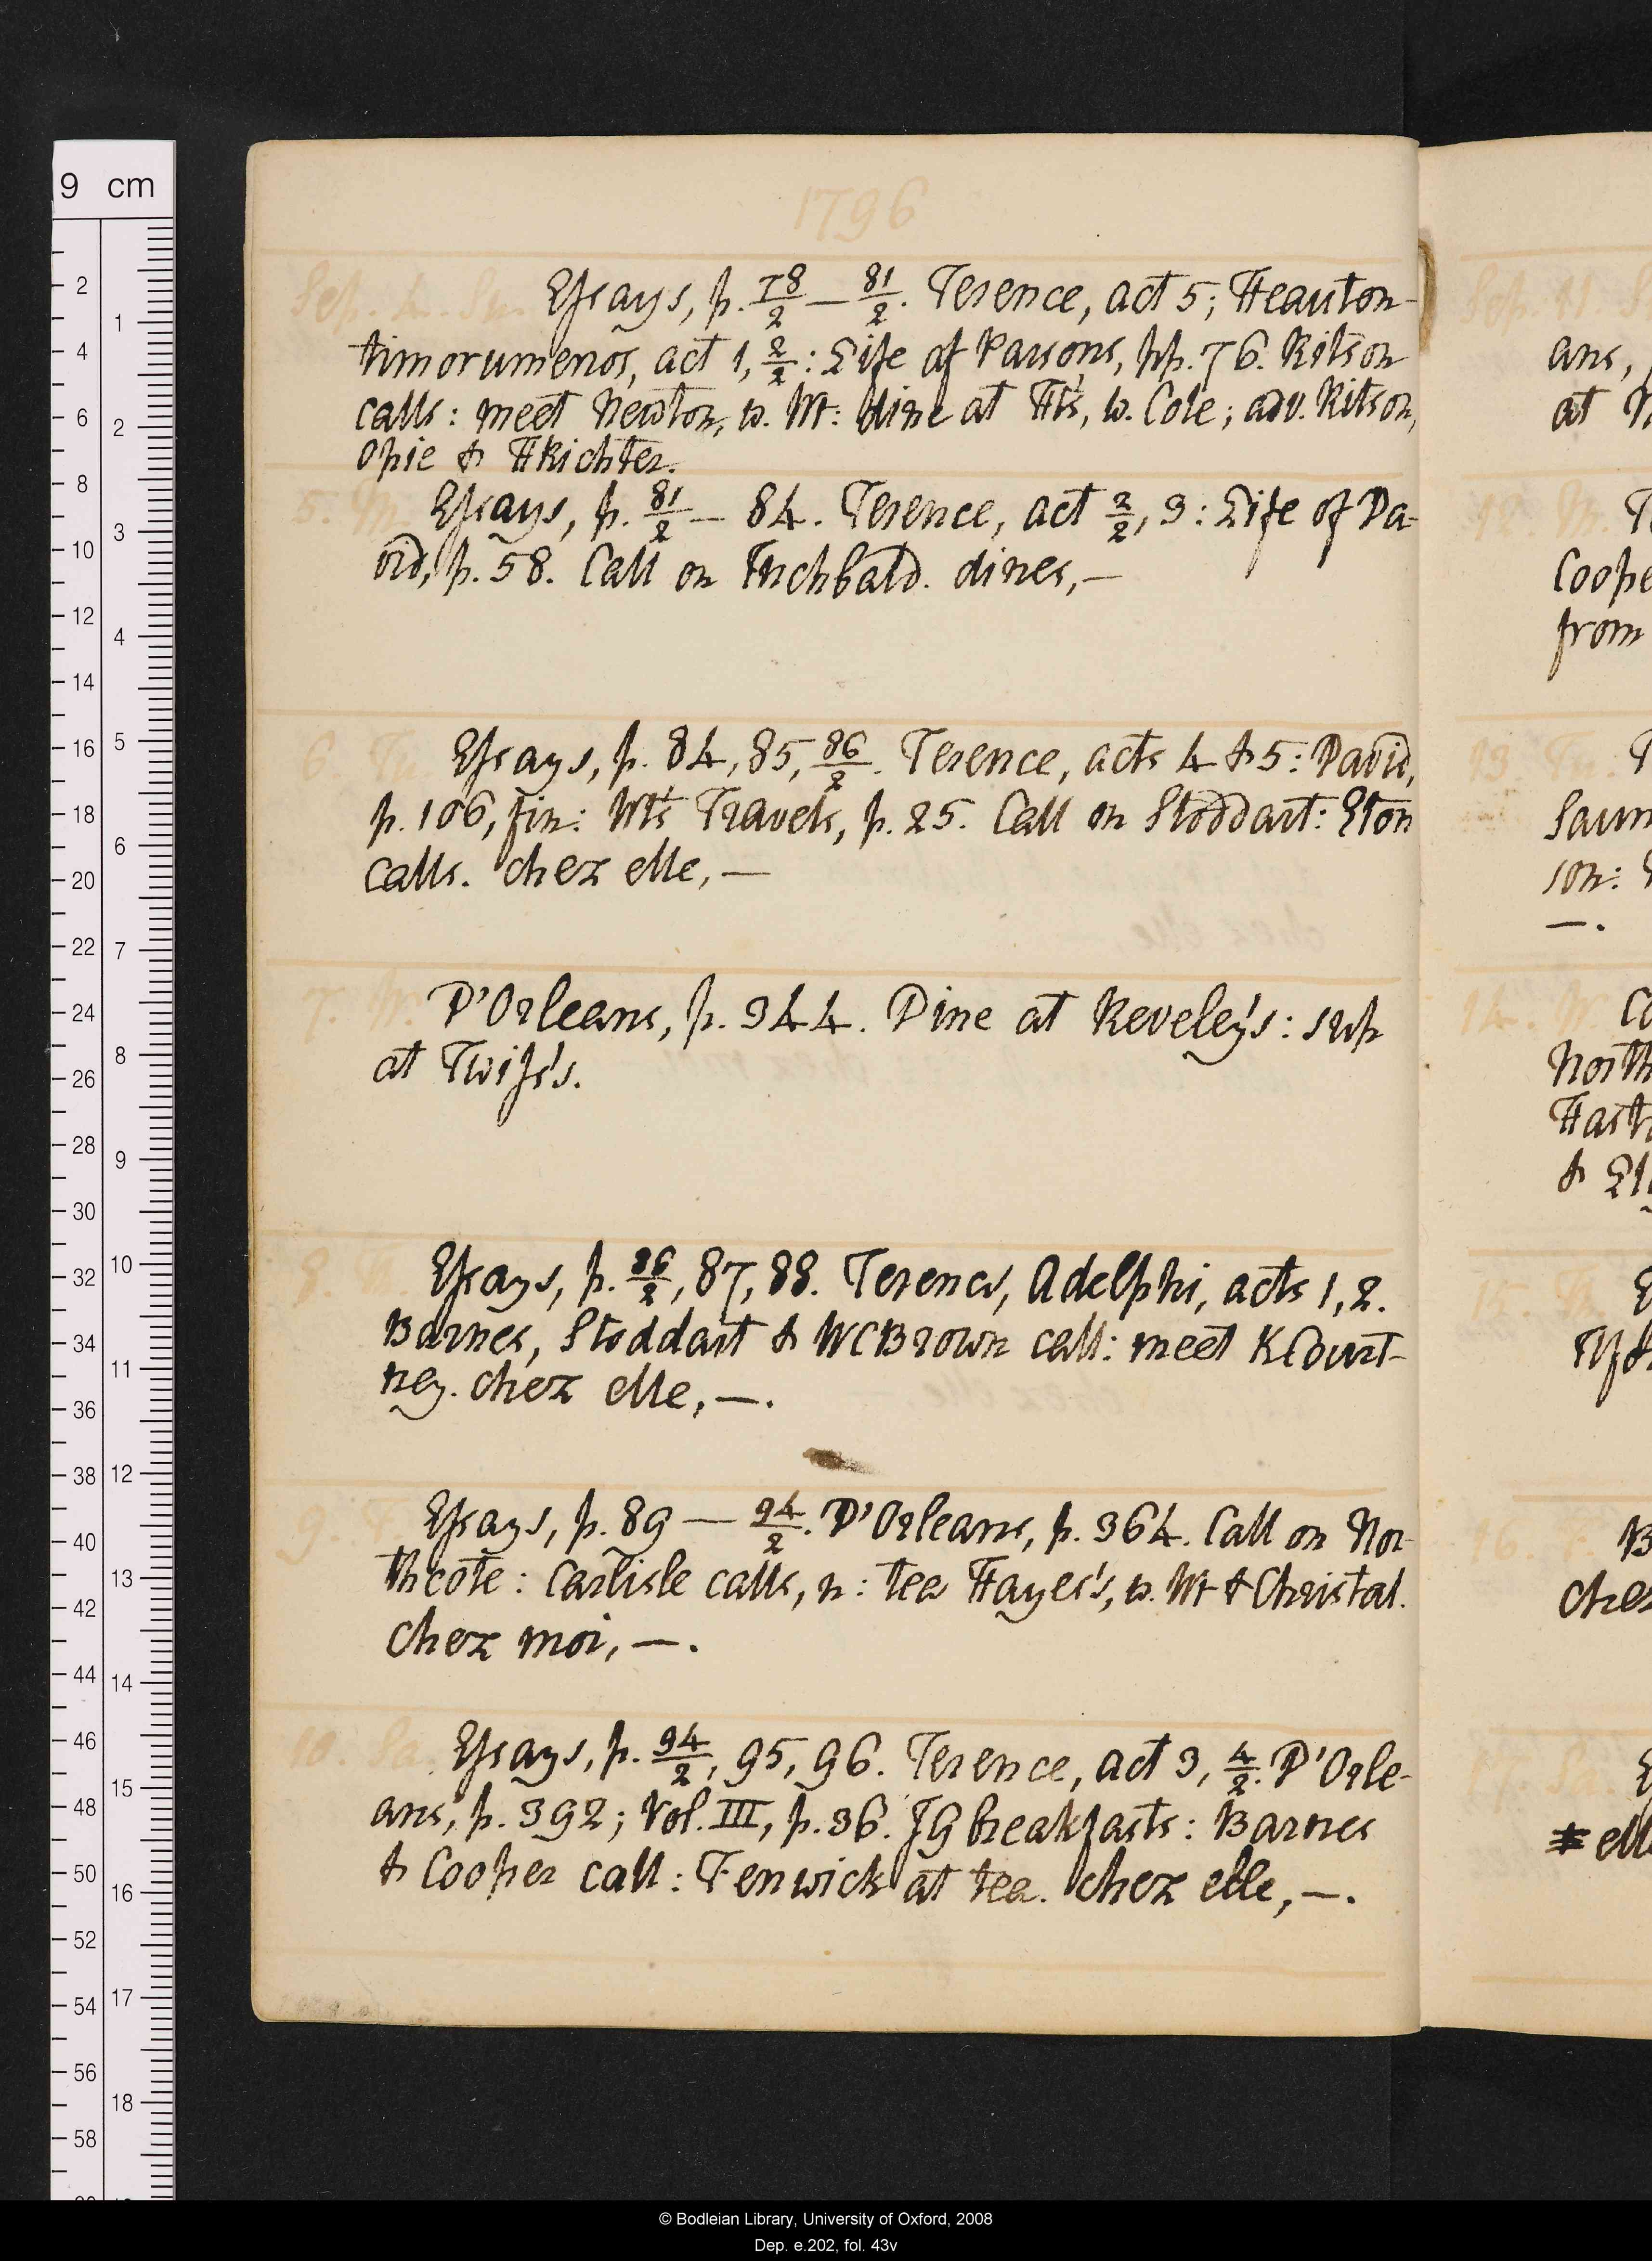 1796
Sep. 4. Su. Eſsays, p. 78/2 — 81/2. Terence, act 5; Heauton-
timorumenos, act 1, 2/2: Life of Parsons, pp. 76. Ritson
calls: meet Newton, w. Wt: dine at Ht's, w. Cole; adv. Ritson,
Opie & HRichter.
5. M. Eſsays, p. 81/2 — 84. Terence, act 2/2, 3: Life of Da-
vid, p. 58. Call on Inchbald. dines, —
6 Tu. Eſsays, p. 84, 85, 86/2. Terence, acts 4 & 5: David,
p. 106, fin: Wt's Travels, p. 25. Call on Stoddart: Elton
calls. chez elle, —
7. W. D'Orleans, p. 344. Dine at Reveley's: sup
at Twiſs's.
8. Eſsays, p. 86/2, 87, 88. Terence, Adelphi, acts 1, 2.
Barnes, Stoddart & WCBrown call: meet KCourt-
ney. chez elle, —.
9 F. Eſsays, p. 89 — 94/2. D'Orleans, p. 364. Call on Nor-
thcote: Carlisle calls, n: tea Hayes's, w. Wt & Christal.
Chez moi, —.
10. Sa. Eſsays, p. 94/2, 95, 96. Terence, act 3, 4/2. D'Orle-
ans, p. 392; Vol. III, p. 36. JG breakfasts: Barnes
& Cooper call: Fenwick at tea. chez elle, —.
Sep. 11. S
ans,
at
12. M. T
Coope
from
13. Tu.
Saun
son:
—.
14. W. Ca
North
Hast
& El
15.
16.
chez
17. Sa.
elle
9 cm
2
4
6
8
10
12
14
16
18
20
22
24
26
28
30
32
34
36
38
40
42
44
46
48
50
52
54
56
58
1
2
3
4
5
6
7
8
9
10
11
12
13
14
15
16
17
18
© Bodleian Library, University of Oxford, 2008
Dep. e.202, fol. 43v